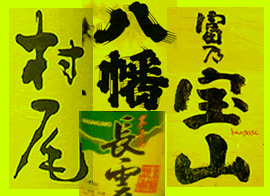 村尾
八幡
富乃
宝山
長雲